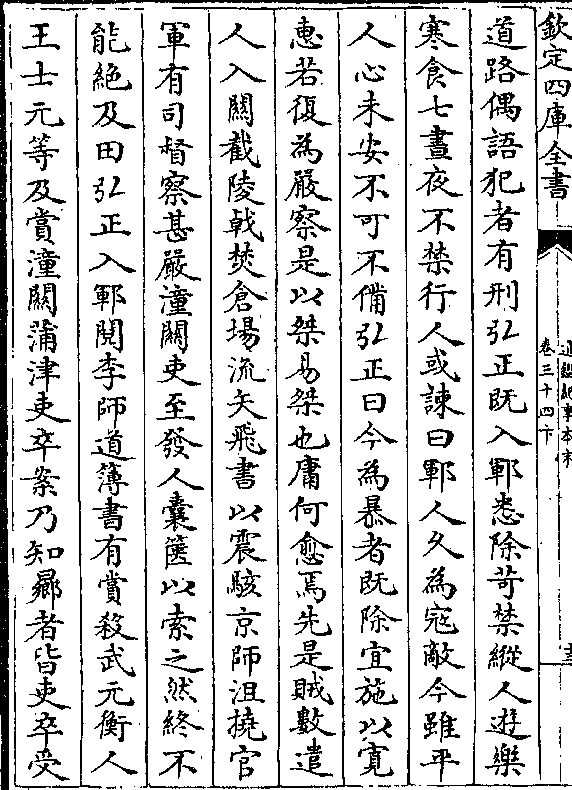 欽定四庫全書
通鑑紀事本末
卷三十四下
道路偶語犯者有刑弘正既入鄆悉除苛禁縱人遊樂
寒食七晝夜不禁行人或諫曰鄆人久為寇敵今雖平
人心未安不可不備弘正曰今為暴者既除宜施以寛
惠若復為嚴察是以桀易桀也庸何愈焉先是賊數遣
人入關截陵戟焚倉場流矢飛書以震駭京師沮撓官
軍有司督察甚嚴潼關吏至發人囊篋以索之然終不
能絶及田弘正入鄆閲李師道簿書有賞殺武元衡人
王士元等及賞潼關蒲津吏卒案乃知曏者皆吏卒受